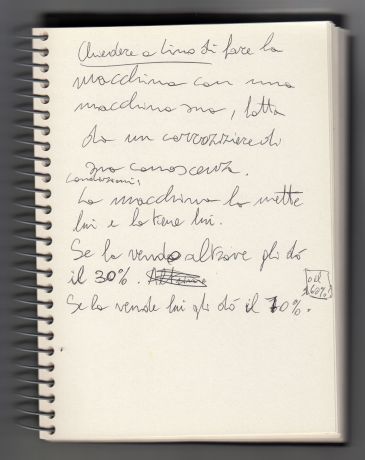 Chiedere a Lino di fare la
macchina con una
macchina sua, fatta
da un carrozziere di
sua conoscenza.
Condizioni:
La macchina la mette
lui e la tiene lui.
Se la vendo altrove gli dò
il 30%.
o il 60%
Se la vende lui gli dò il 70%.